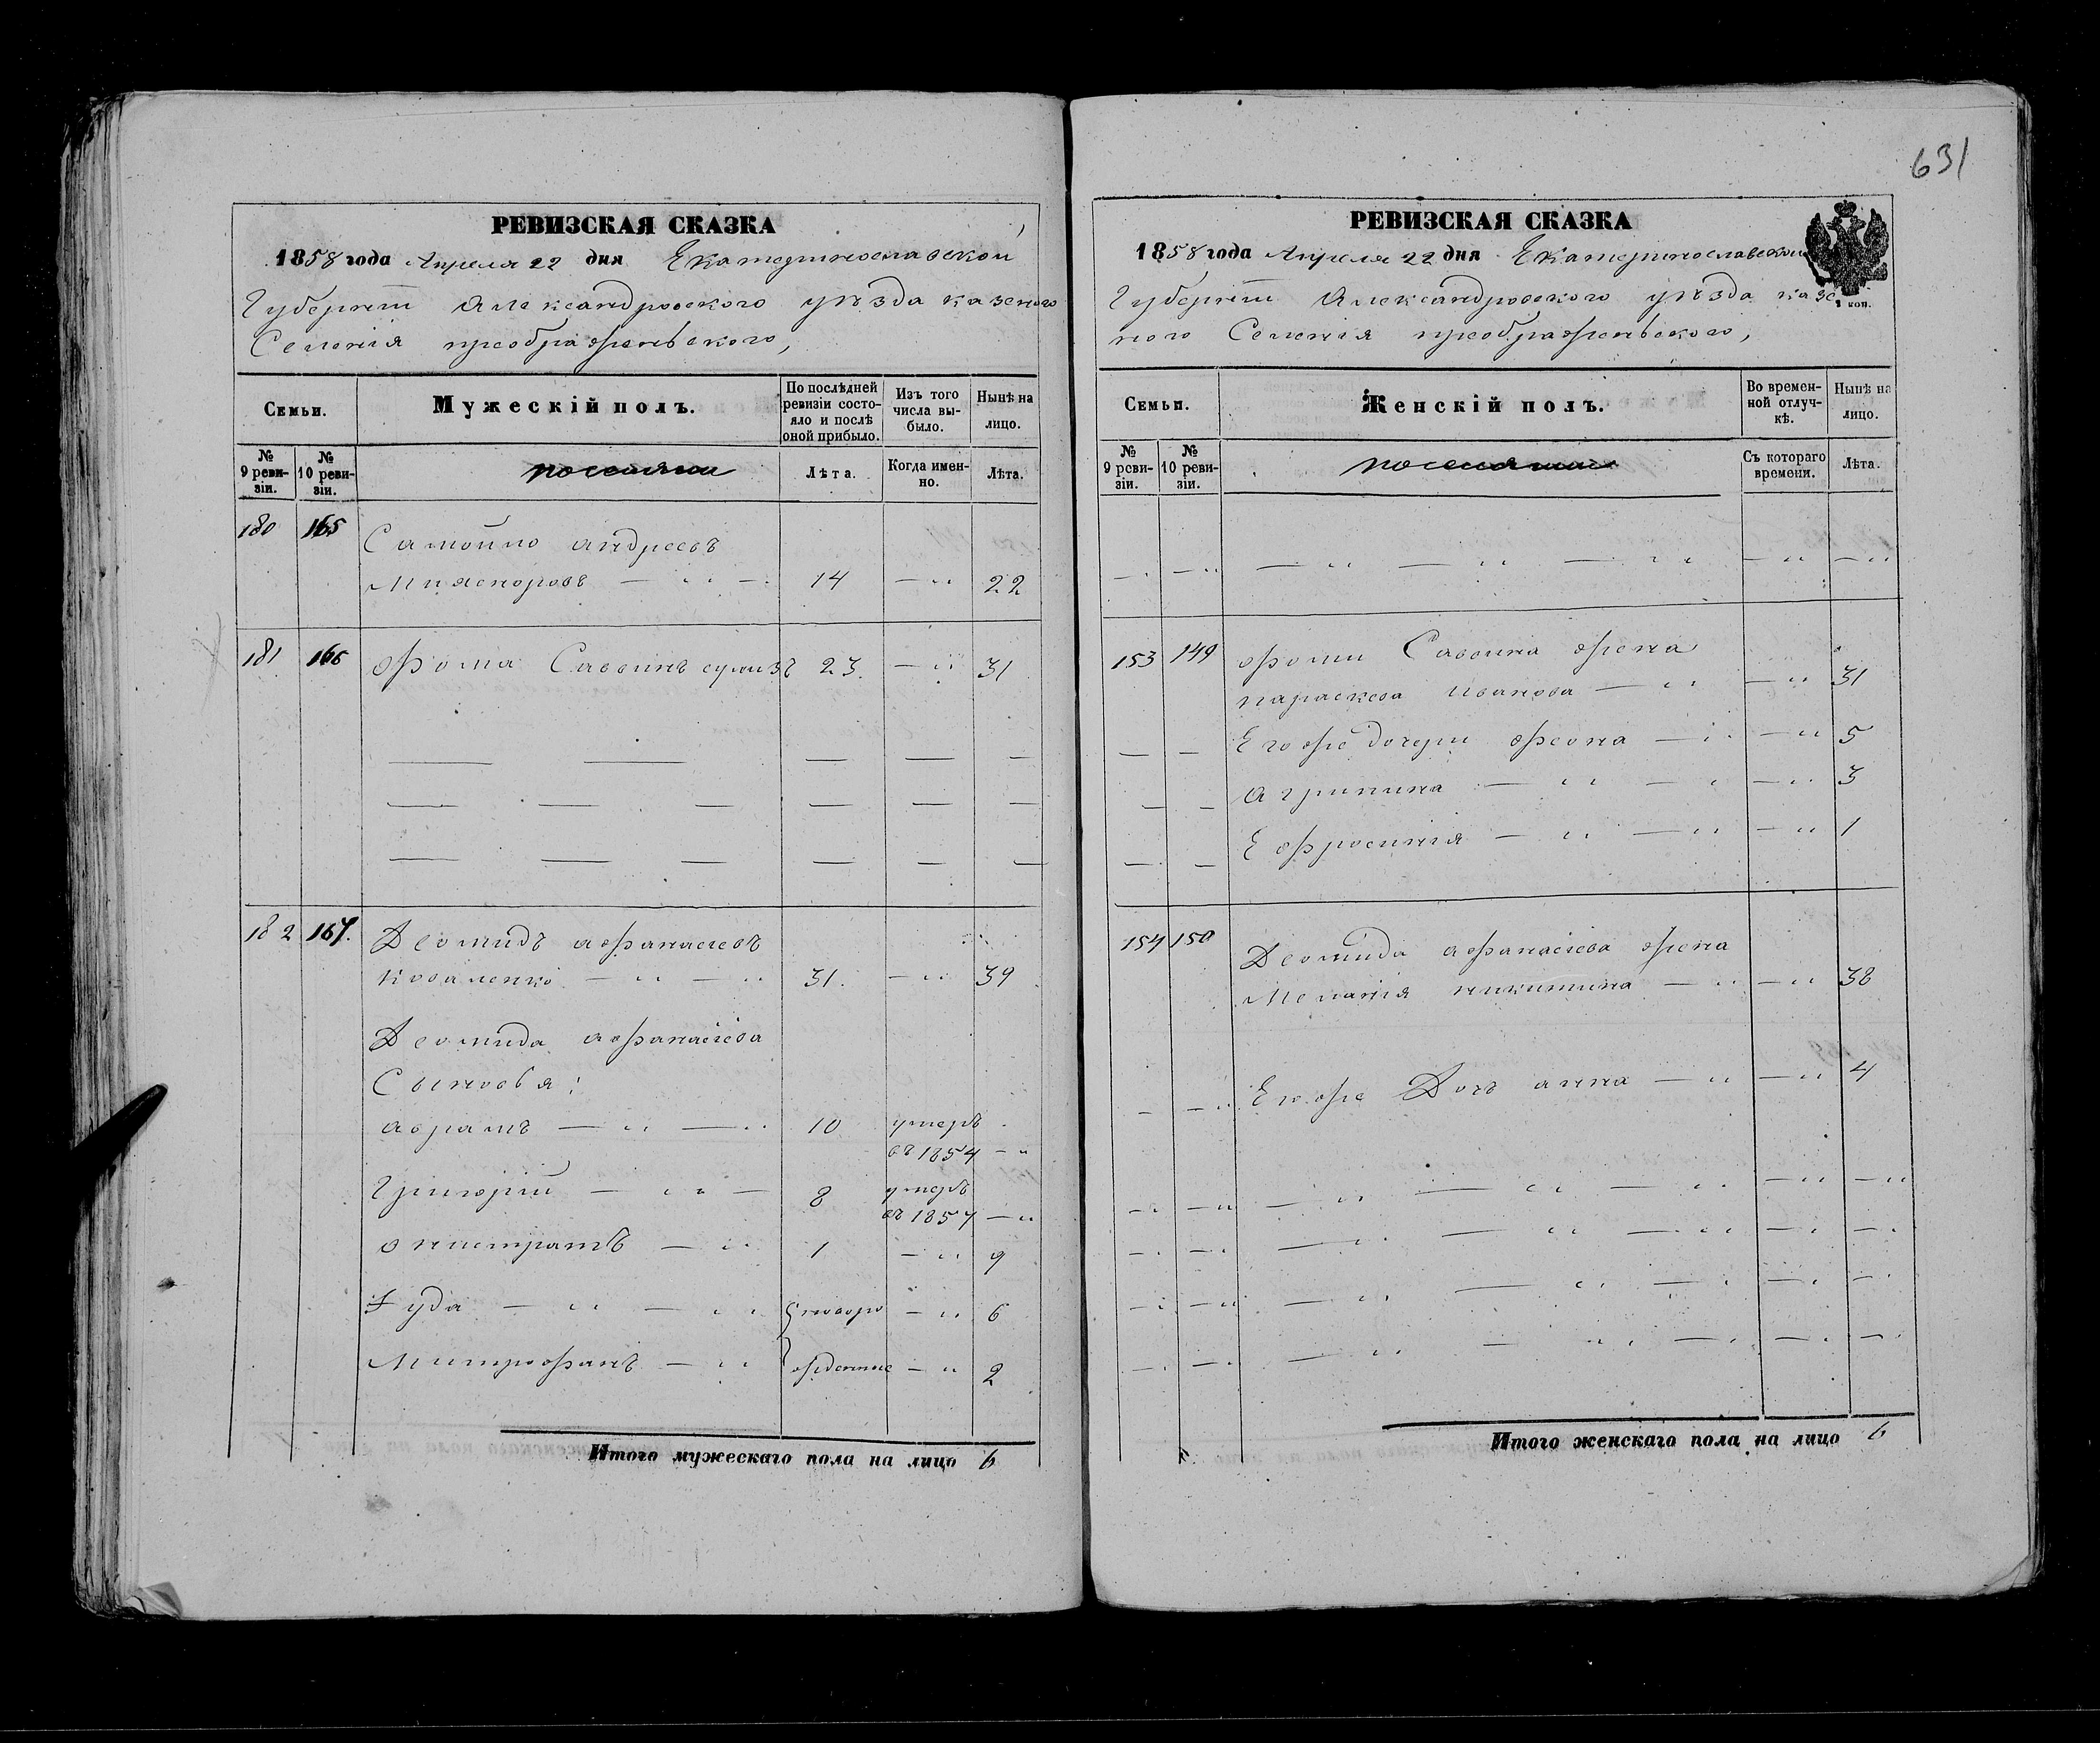 631
РЕВИЗСКАЯ СКАЗКА
1858 года Апреля 22 дня Екатеринославской
Губернiи Александровского уѣзда казеного
Селенiя преображеньского,
Семьи.
Мужескiй полъ.
По послѣдней ревизiи состояло и послѣ оной прибыло.
Изъ того числа выбыло.
Нынѣ на лицо.
№ 9 ревизiи.
№ 10 ревизiи.
поселяни
Лѣта.
Когда именно.
Лѣта.
180 165 Самойло андреевъ
14 — 22
181 166 Фома Саввинъ 23. — 31
182 167. Деомидъ афанасiевъ
коваленко — — 31. — 39
Деомида афанасiева
Сыновья:
аврамъ — — 10 умеръ
въ 1854 —
Григорiй — — 8 умеръ
въ 1857 —
онистратъ — 1 — 9
Iуда — — новоро — 6
Митрофанъ — жденные — 2
Итого мужескаго пола на лицо 6
РЕВИЗСКАЯ СКАЗКА
1858 года Апреля 22 дня Екатеринославской
Губернiи Александровского уѣзда казе
1 коп.
ного Селенiя преображеньского,
Семьи.
Женскiй полъ.
Во временной отлучкѣ.
Нынѣ на лицо.
№ 9 ревизiи.
№ 10 ревизiи.
поселянки
Съ котораго времени.
Лѣта.
153 149 Фоми Саввина жена
параскева иванова — — 31
Его же дочери Феона — — 5
Агрипина — — — 3
Ефросинiя — — — 1
154 150 Деомида афанасiева жена
Меланiя никитина — — 38
Его же Дочь анна — — 4
Итого женскаго пола на лицо 6